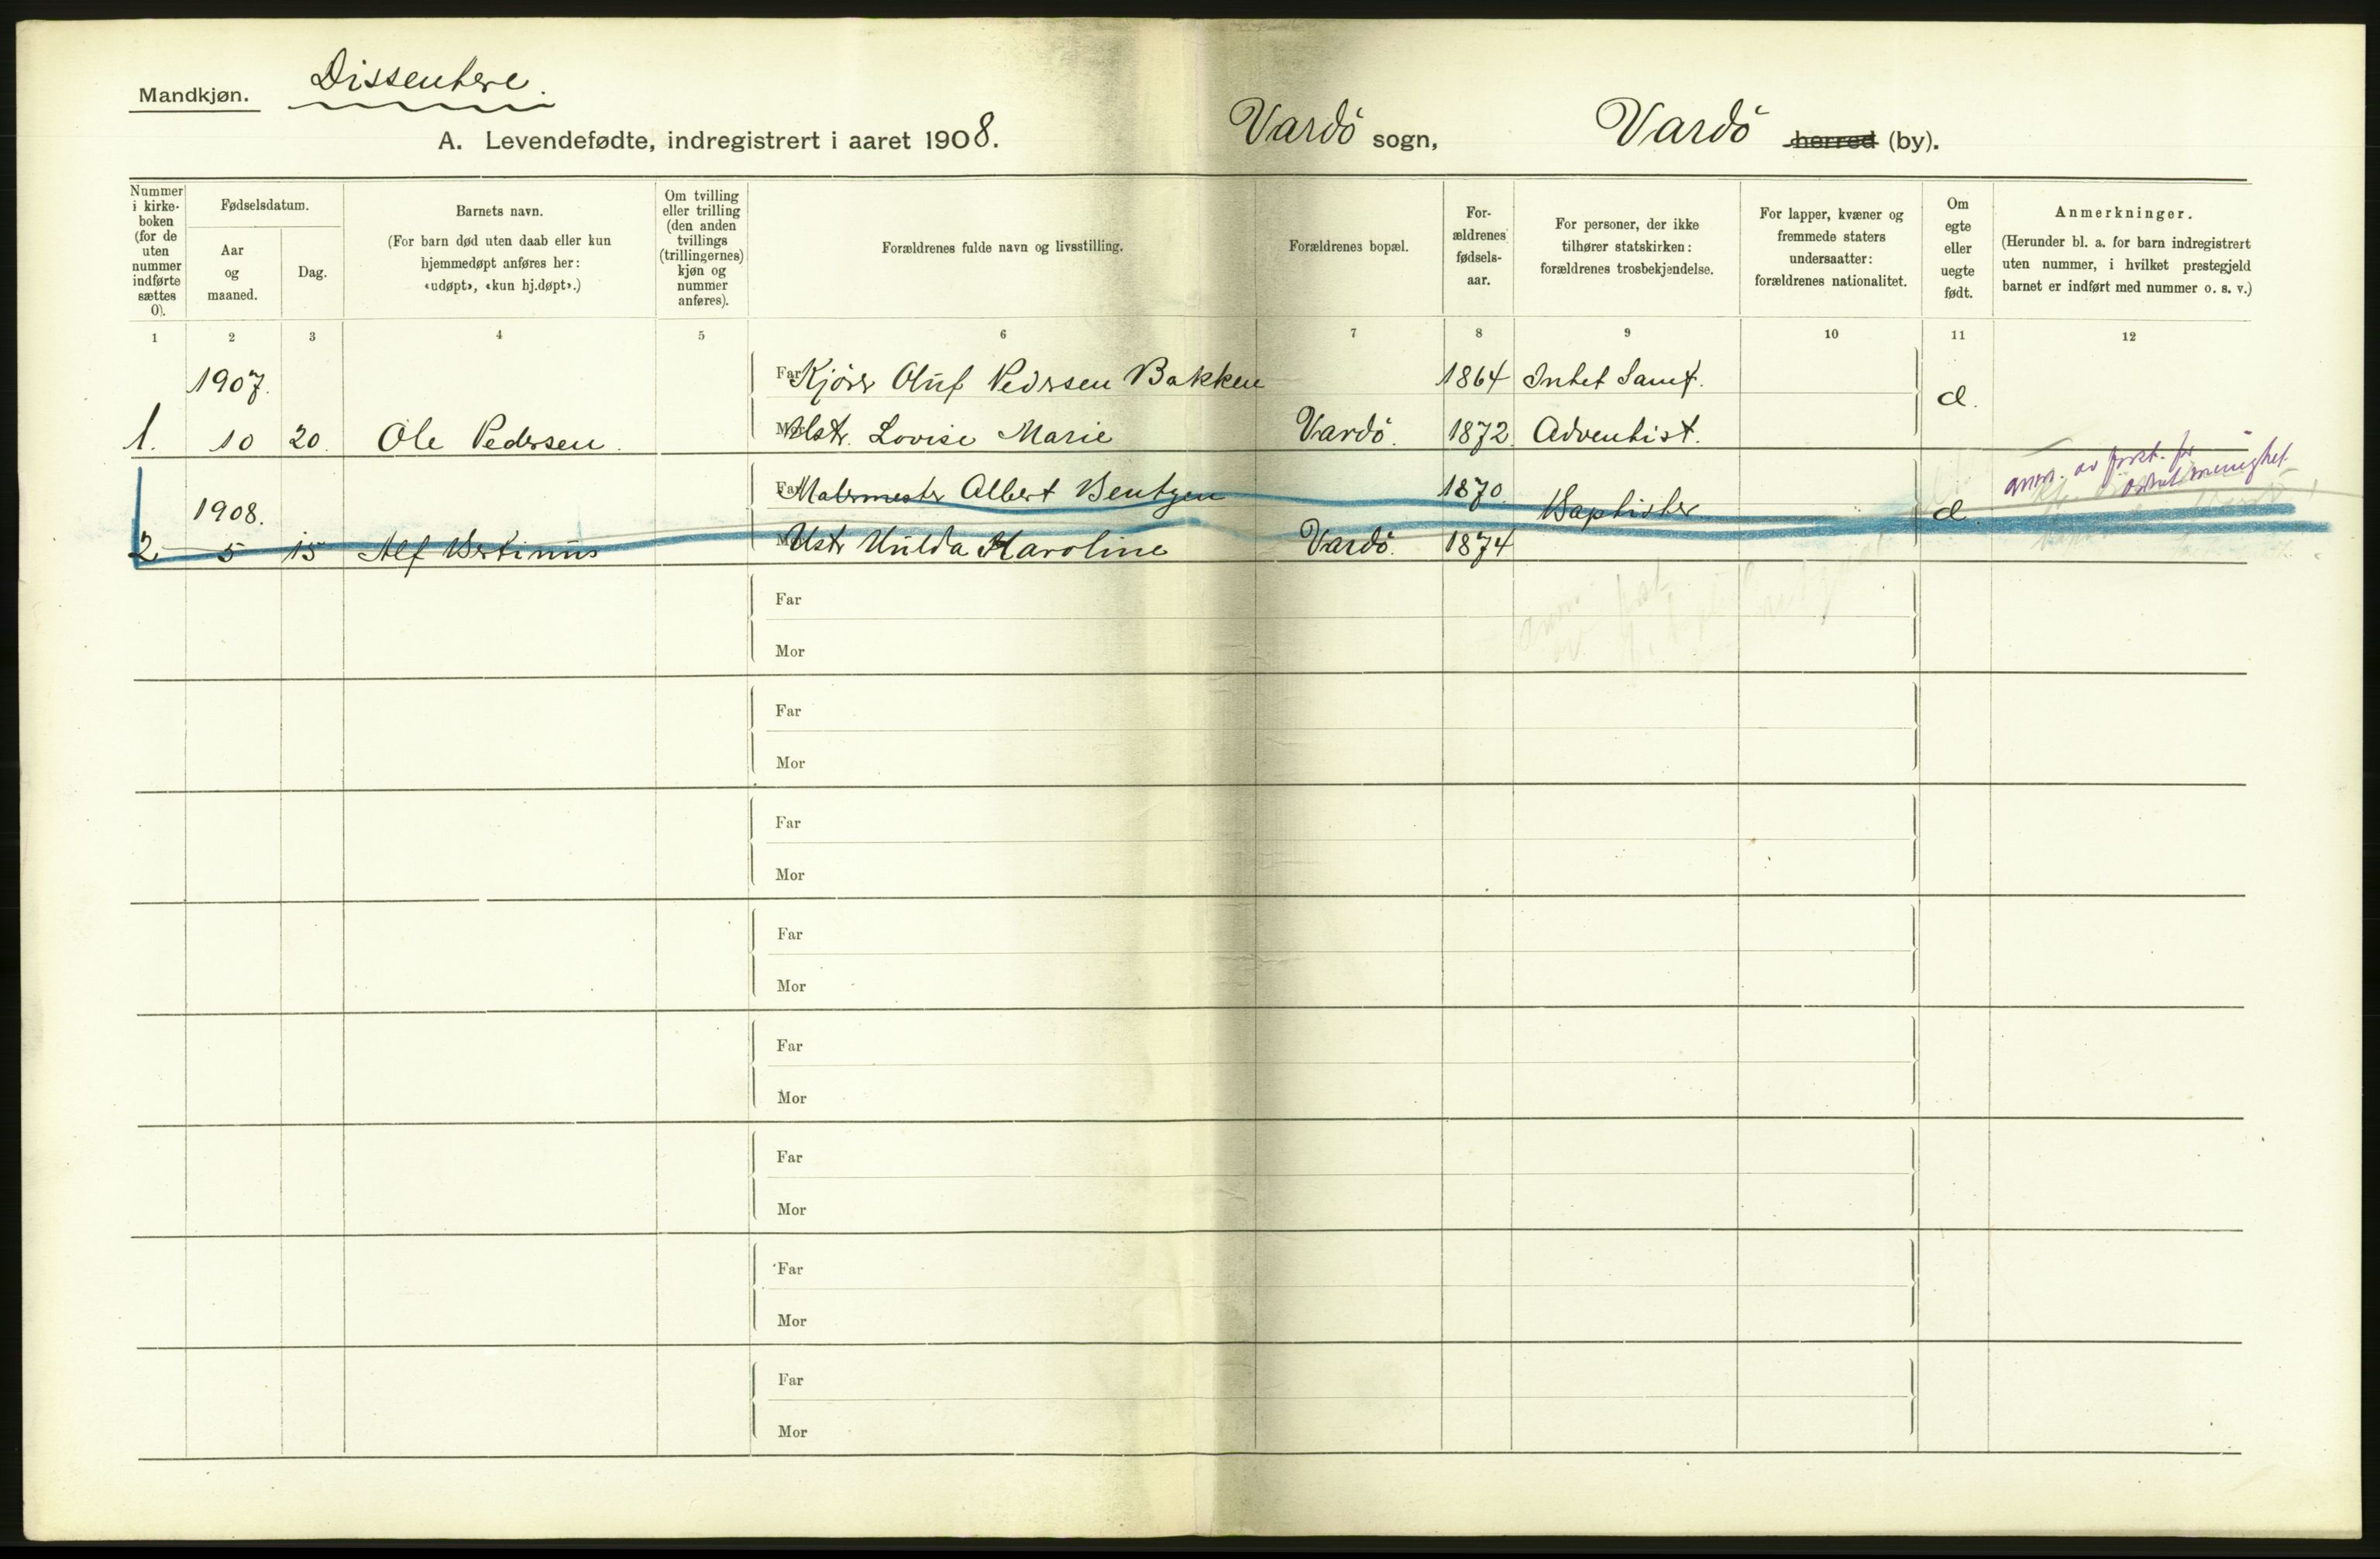 Mandkjøn. Dissentere.
A. Levendefødte, indregistrert i aaret 1908. Vardö sogn, Vardö herred (by).
Nummer i kirke-boken (for de uten nummer indførte sættes 0).
Fødselsdatum.
Aar og maaned.
Dag.
Barnets navn.
(For barn død uten daab eller kun hjemmedøpt anføres her: «udøpt», «kun hj.døpt».)
Om tvilling eller trilling (den anden tvillings (trillingernes) kjøn og nummer anføres).
Forældrenes fulde navn og livsstilling.
Forældrenes bopæl.
For-ældrenes fødsels-aar.
For personer, der ikke tilhører statskirken: forældrenes trosbekjendelse.
For lapper, kvæner og fremmede staters undersaatter: forældrenes nationalitet.
Om egte eller uegte født.
Anmerkninger.
(Herunder bl. a. for barn indregistrert uten nummer, i hvilket prestegjeld barnet er indført med nummer o. s. v.)
1 2 3 4 5 6 7 8 9 10 11 12
1907. Far Oluf Pedersen Bakken 1864 Intet Samf.
1. 10 20. Ole Pedersen. Mor Hstr. Lovise Marie Vardö. 1872. Adventist. d.
1908. Far Malermester Albert Bentzen 1870 Baptister
2 5 15 Alf Bertinus Mor Hstr Hulda Karoline Vardö. 1874 d
anm. av forst. for
menighet
Far
Mor
Far
Mor
Far
Mor
Far
Mor
Far
Mor
Far
Mor
Far
Mor
Far
Mor